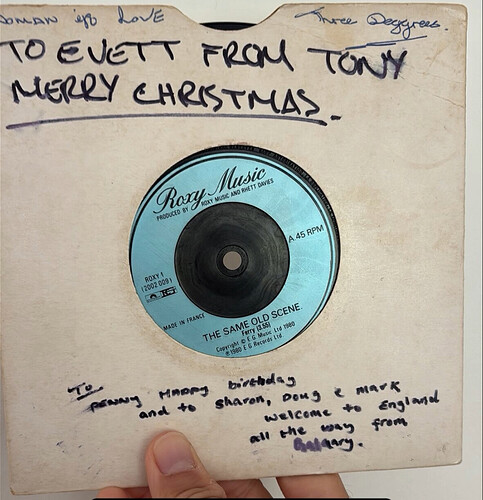 OMAN in LOVE Three Deggrees.
TO EVETT FROM TONY
MERRY CHRISTMAS.
Roxy Music
PRODUCED BY ROXY MUSIC AND RHETT DAVIES
A.45 RPM
ROXY 1
(2002 009)
MADE IN FRANCE
THE SAME OLD SCENE.
Ferry (3.55)
Copyright © E.G. Music Ltd 1980
℗ 1980 E.G Records Ltd
To
PENNY HAPPY birthday
and to sharon, Doug & mark
welcome to England
all the way from